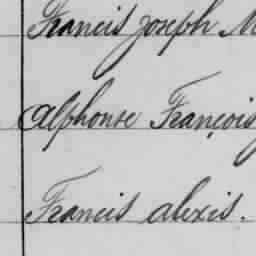 Francis Joseph M
Alphonse François
Francis alexis.